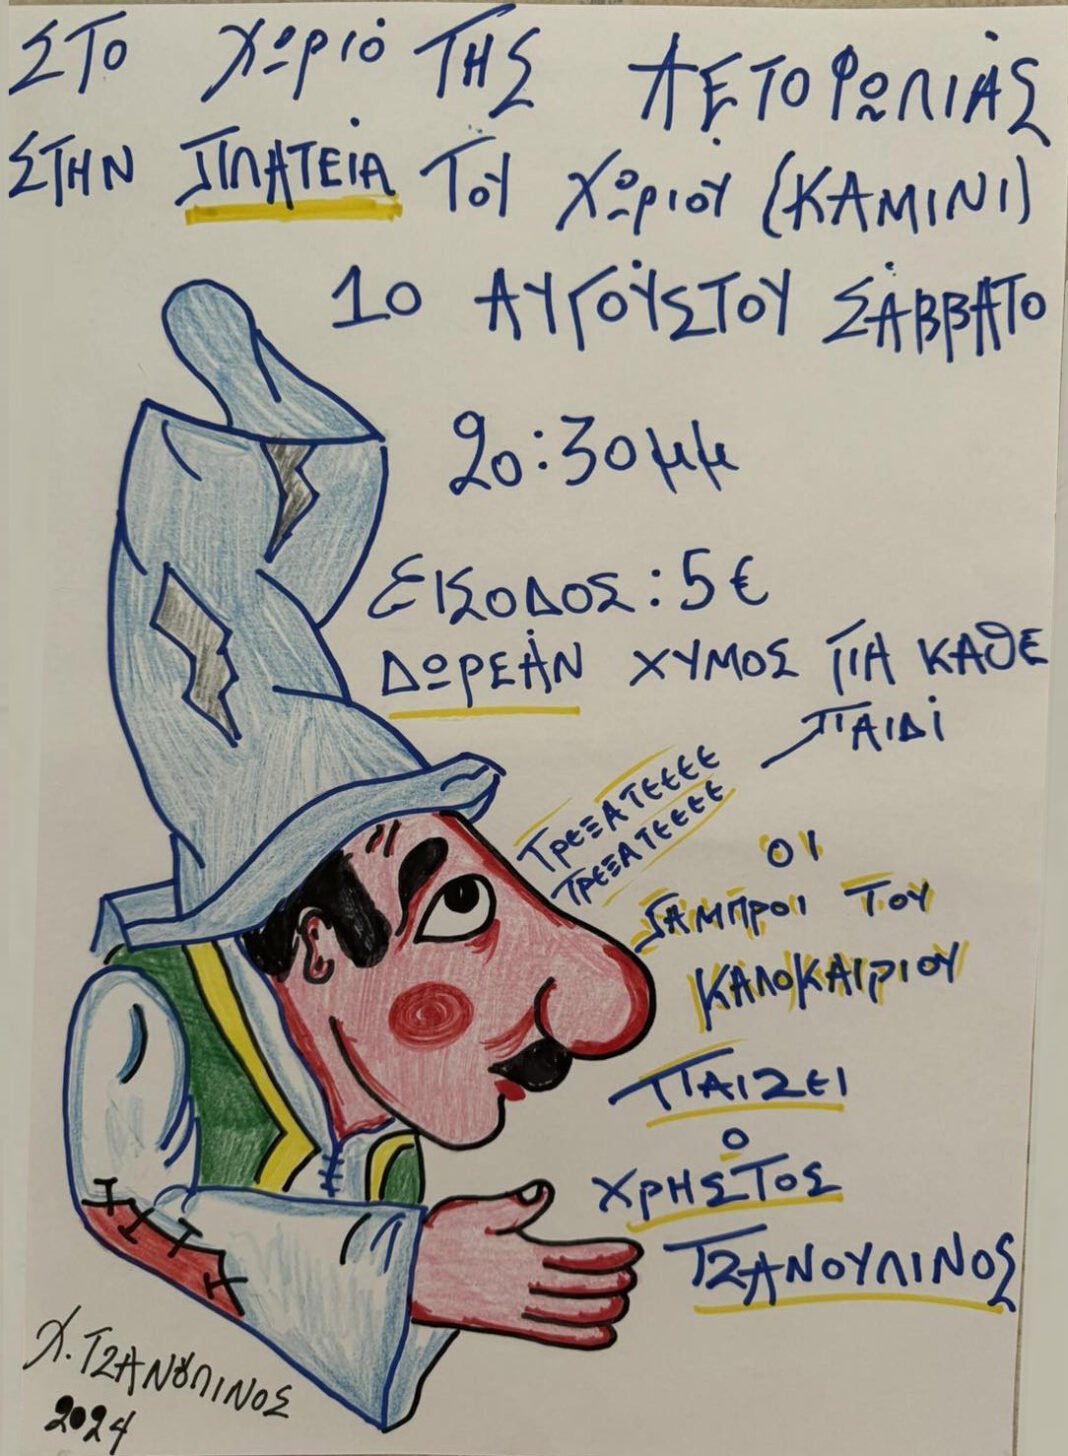 ΣΤΟ ΧΩΡΙΌ ΤΗΣ ΑΕΤΟΦΩΛΙΆΣ
ΣΤΗΝ ΠΛΑΤΕΊΑ ΤΟΥ ΧΩΡΙΟΎ (ΚΑΜΙΝΙ)
10 ΑΥΓΟΎΣΤΟΥ ΣΆΒΒΑΤΟ
20:30μμ
ΕΙΣΟΔΟΣ: 5€
ΔΩΡΕΆΝ ΧΥΜΟΣ ΓΙΑ ΚΑΘΕ
ΠΑΙΔΊ
ΤΡΕΞΑΤΕΕΕΕ
ΤΡΕΞΑΤΕΕΕΕ
ΟΙ
ΓΑΜΠΡΟΙ ΤΟΥ
ΚΑΛΟΚΑΙΡΙΟΥ
ΠΑΙΖΕΙ
Ο
ΧΡΗΣΤΟΣ
ΤΖΑΝΟΥΛΙΝΟΣ
Χ. ΤΖΑΝΟΥΛΙΝΟΣ
2024